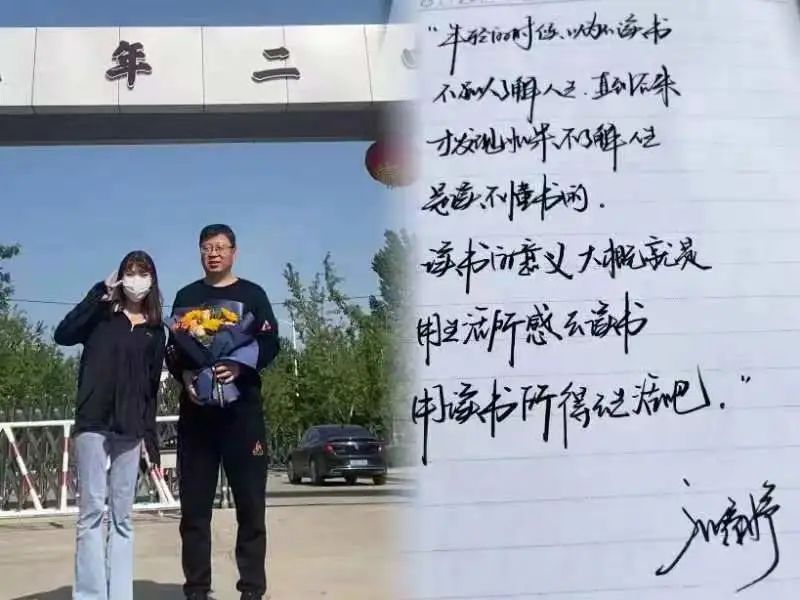 年 二
“年轻的时候、以为不读书
不足以了解人生、直到后来
才发现如果不了解人生
是读不懂书的.
读书的意义大概就是
用生活所感去读书
用读书所得去生活吧.”